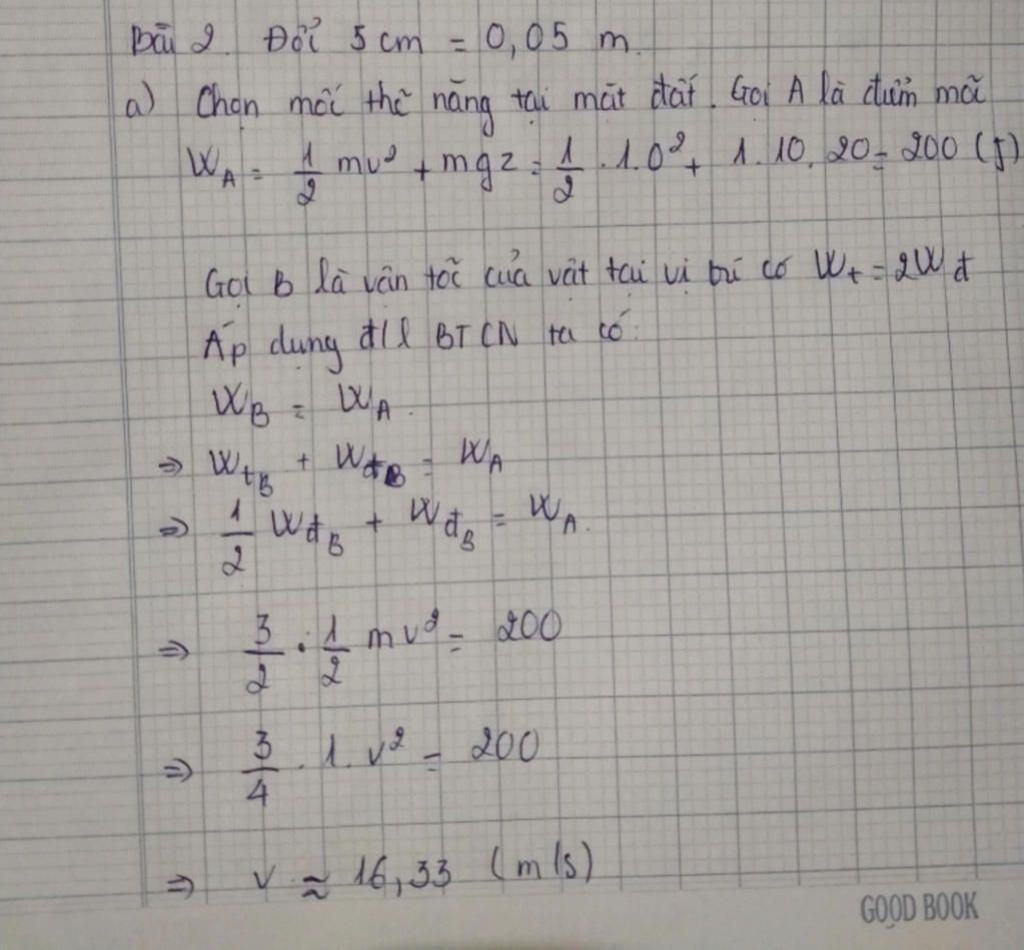 Bài 2. Đổi 5 cm = 0,05 m.
a) Chọn mốc thế năng tại mặt đất. Gọi A là điểm mã
W_A = 1/2 mv² + mgz = 1/2 . 1.0² + 1.10.20 = 200 (J)
Gọi B là vận tốc của vật tại vị trí có W_t = 2W_đ
Áp dụng đ/l BTCN ta có:
W_B = W_A.
⇒ W_tB + W_đB = W_A
⇒ 1/2 W_đB + W_đB = W_A.
⇒ 3/2 . 1/2 mv² = 200
⇒ 3/4 . 1. v² = 200
⇒ v ≈ 16,33 (m/s)
GOOD BOOK